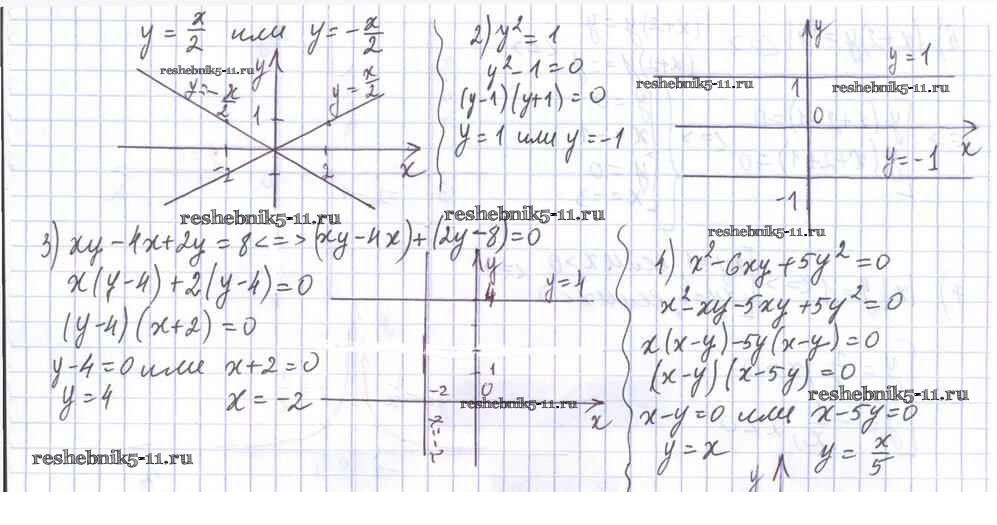 y = x/2 или y = -x/2
y = -x/2
y = x/2
y
1
-2
2
x
2) y² = 1
y² - 1 = 0
(y-1)(y+1) = 0
y = 1 или y = -1
y
y = 1
1
0
x
y = -1
-1
reshebnik5-11.ru
reshebnik5-11.ru
reshebnik5-11.ru
reshebnik5-11.ru
reshebnik5-11.ru
reshebnik5-11.ru
3) xy - 4x + 2y = 8 <=> (xy - 4x) + (2y - 8) = 0
x(y-4) + 2(y-4) = 0
(y-4)(x+2) = 0
y-4 = 0 или x+2 = 0
y = 4 x = -2
y
4
y = 4
1
-2
0
x
reshebnik5-11.ru
reshebnik5-11.ru
4) x² - 6xy + 5y² = 0
x² - xy - 5xy + 5y² = 0
x(x-y) - 5y(x-y) = 0
(x-y)(x-5y) = 0
reshebnik5-11.ru
x-y = 0 или x-5y = 0
y = x y = x/5
y